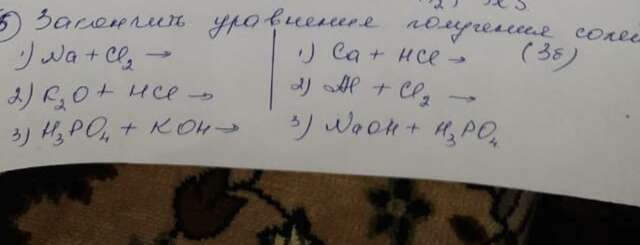 5) Закончить уравнения получения солей
1) Na + Cl₂ →
2) K₂O + HCl →
3) H₃PO₄ + KOH →
1) Ca + HCl → (3б)
2) Al + Cl₂ →
3) NaOH + H₃PO₄